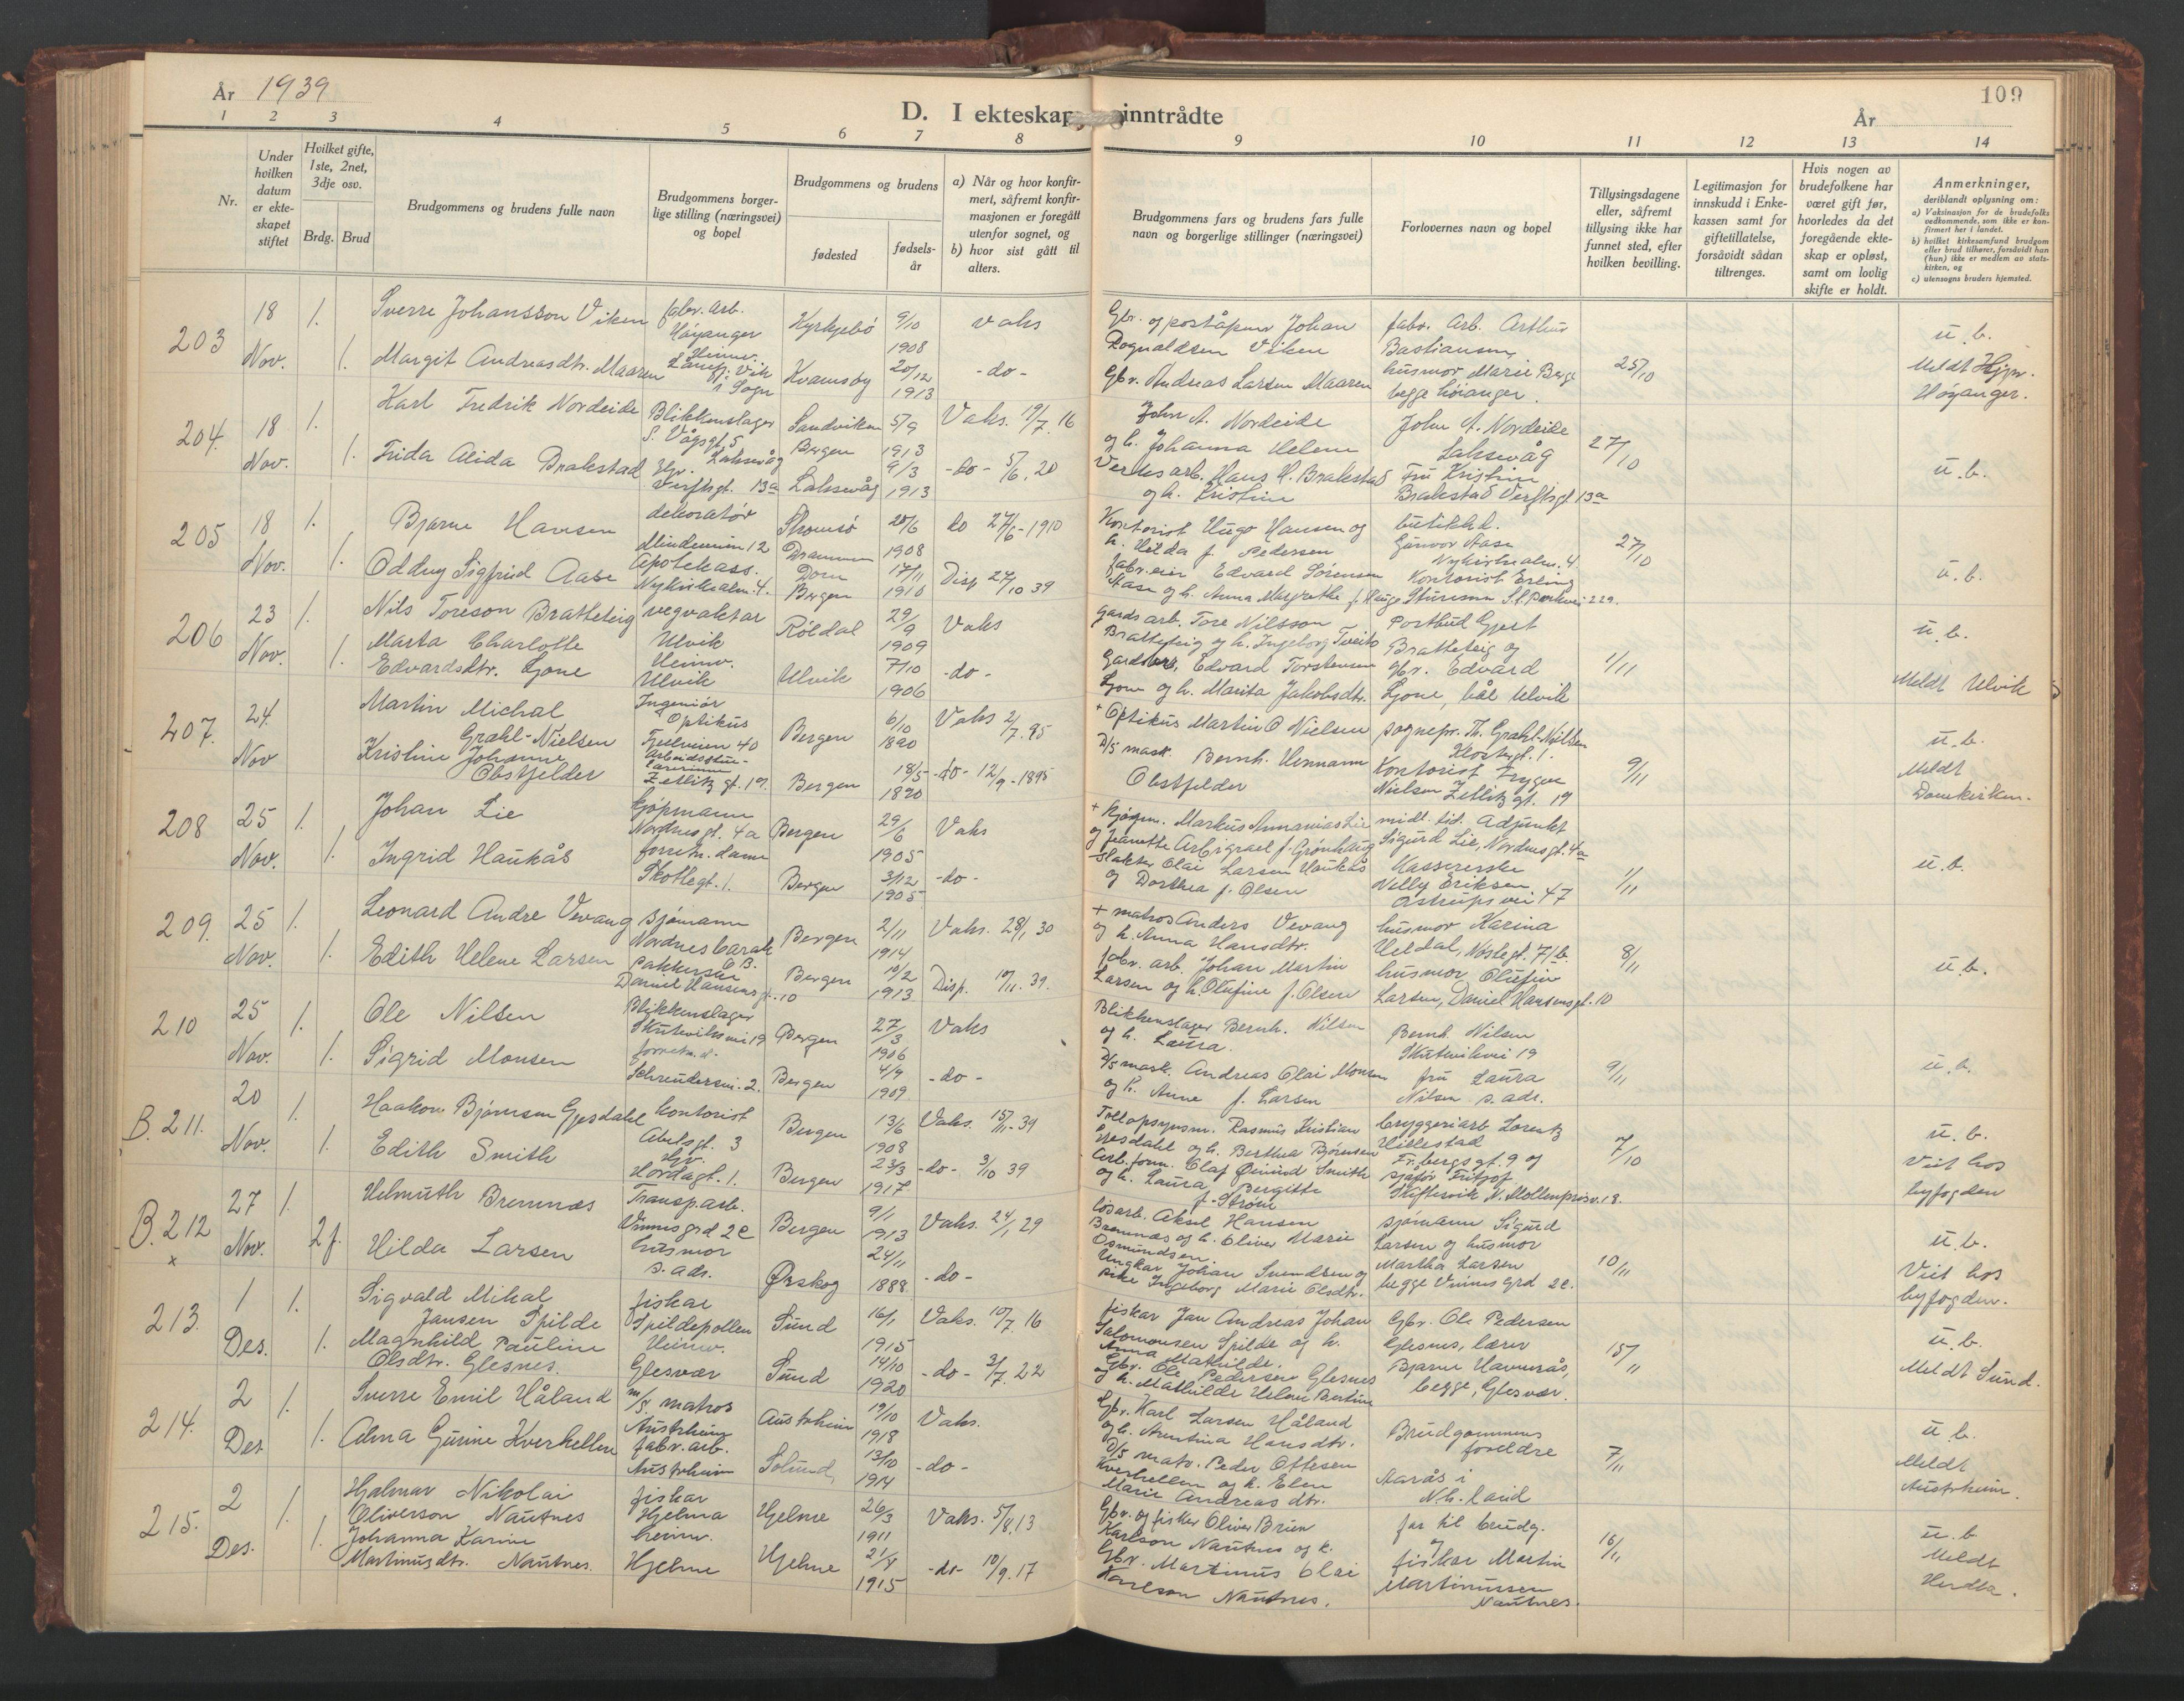 År 1939
D. I ekteskap inntrådte
År
109
1 2 3 4 5 6 7 8 9 10 11 12 13 14
Nr.
Under hvilken datum er ekteskapet stiftet
Hvilket gifte, 1ste, 2net, 3dje osv.
Brdg. Brud
Brudgommens og brudens fulle navn
Brudgommens borgerlige stilling (næringsvei) og bopel
Brudgommens og brudens
fødested
fødselsår
a) Når og hvor konfirmert, såfremt konfirmasjonen er foregått utenfor sognet, og
b) hvor sist gått til alters.
Brudgommens fars og brudens fars fulle navn og borgerlige stillinger (næringsvei)
Forlovernes navn og bopel
Tillysingsdagene eller, såfremt tillysing ikke har funnet sted, efter hvilken bevilling.
Legitimasjon for innskudd i Enkekassen samt for giftetillatelse, forsåvidt sådan tiltrenges.
Hvis nogen av brudefolkene har været gift før, hvorledes da det foregående ekteskap er opløst, samt om lovlig skifte er holdt.
Anmerkninger, deriblandt oplysning om:
a) Vaksinasjon for de brudefolks vedkommende, som ikke er konfirmert her i landet.
b) hvilket kirkesamfund brudgom eller brud tilhører, forsåvidt han (hun) ikke er medlem av statskirken, og
c) utensogns bruders hjemsted.
203 18 Nov. 1. 1.
Sverre Johansson Viken fabr. arb. Høyanger Kyrkjebø 9/10 1908 vaks
Margit Andreasdtr. Maaren Heimv. Vik i Sogn Kvamsøy 20/12 1913 -do-
Gbr. og poståpner Johan Rognaldsen Viken
Gbr. Andreas Larsen Maaren
fabr. Arb. Arthur Bastiansen, husmor Marie Berge begge Høianger.
25/10
u. b. Meldt Høyanger.
204. 18 Nov. 1. 1.
Karl Fredrik Nordeide Blikkenslager S. Vågsgt. 5 Laksevåg Sandviken Bergen 5/9 1913 Vaks. 19/7. 16
Frida Alida Brakestad Hjv. Verftsgt. 13a Laksevåg 9/3 1913 -do- 5/6. 20
John A. Nordeide og h. Johanna Helene
Verksarb. Hans H. Brakestad og h. Kristine
John A. Nordeide Laksevåg
Fru Kristine Brakestad Verftsgt 13a
27/10
u. b.
205 18 Nov. 1. 1.
Bjarne Hansen dekoratør Mindeveien 12 Strømsø Drammen 20/6 1908 do 27/6-1910
Oddny Sigfrid Aase Apotekass. Nykirkealm. 4. Dom Bergen 17/11 1910 Disp 27/10 39
Kontorist Hugo Hansen og h. Hilda f. Pedersen
fabr. eier Edvard Sørensen Aase og h. Anna Margrethe f. Hauge
butikkd. Gunvor Aase Nykirkealm. 4.
Kontorist Erling
27/10
u. b.
206 23 Nov. 1. 1.
Nils Toreson Bratteteig vegvaktar Ulvik Röldal 29/9 1909 Vaks
Marta Charlotte Edvardsdtr. Ljone Heimv. Ulvik Ulvik 7/10 1906 -do-
Gardsarb. Tore Nilsson Bratteteig og h. Ingeborg Tveito
Gardbr. Edvard Torstensen Ljone og h. Marita Jakobsdtr.
Postbud Gjest Bratteteig og gbr. Edvard Ljone, båe Ulvik
1/11
u. b. Meldt Ulvik
207. 24. Nov
Martin Michal Grahl-Nielsen Ingeniör Optikus Fjellveien 40 Bergen 6/10 1880 Vaks 2/7. 95
Kristine Johanne Obstfelder Arbeidsstuelærerinne Zetlitz gt. 17. Bergen 18/5 1880 -do- 12/9-1895
+ Optikus Martin O Nielsen
D/S mask. Bernh. Hermann Obstfelder
sognepr. Th. Grahl-Nielsen Klostergt. 1.
Kontorist Trygve Nielsen Zetlitz gt. 17
9/11
u. b. Meldt Domkirken.
208 25 Nov. 1. 1.
Johan Lie Kjøpmann Nordnesgt. 4a Bergen 29/6 1905 Vaks
Ingrid Haukås forretn. dame Skottegt. 1. Bergen 3/12 1905 -do-
+ Kjøpm. Markus Annanias Lie og Jeanette f. Grønhaug
Slakter Olai Larsen Haukås og Dorthea f. Olsen
midt. tid. Adjunkt Sigurd Lie, Nordnesgt. 4a
Kassererske Nelly Eriksen 47
1/11
u. b.
209. 25 Nov. 1. 1.
Leonard Andre Vevang sjømann Nordnesbarak 6 B. Bergen 2/11 1914 Vaks. 28/1 30
Edith Helene Larsen pakkerske Daniel Hansens gt. 10 Bergen 10/2 1913 Disp. 10/11. 39.
+ matros Anders Vevang og h. Anna Hansdtr.
fabr. arb. Johan Martin Larsen og h. Olufine f. Olsen
husmor Karina Heldal, Nøstegt. 71b.
husmor Olufine Larsen, Daniel Hansensgt. 10
8/11
u. b.
210 25 Nov. 1. 1.
Ole Nilsen Blikkenslager Skuteviksvei 19 Bergen 27/3 1906 Vaks
Sigrid Monsen forretn. d. Schreudersvei. 2. Bergen 4/9 1909 -do-
Blikkenslager Bernh. Nilsen og h. Laura.
D/S mask. Andreas Olai Monsen og h. Anne f. Larsen
Bernh. Nilsen Skuteviksvei 19
fru Laura Nilsen s. adr.
9/11
u. b.
B. 211. 20 Nov. 1. 1.
Haakon Bjørnsen Gjesdahl kontorist Abelsgt. 3 Bergen 13/6 1908 Vaks. 15/11-39
Edith Smith Hjv. Hordagt. 1. Bergen 23/3 1917 -do- 3/10 39
Tollopsynsm. Rasmus Kristian Gjesdahl og h. Berthea Bjørnsen
Arb. form. Olaf Øivind Smith og h. Laura Bergitte f. Strøm
bryggeriarb Lorentz Hillestad Fr. bergsgt. 9 og sjåfør Fritjof
7/10
u. b. Viet hos byfogden
B. 212 x 27 Nov. 1. 2 f.
Helmuth Bremnes Transp. arb. Vinnesgrd 2c Bergen 9/1 1913 Vaks. 24/1 29
Hilda Larsen husmor s. adr. Ørskog 24/11 1888 -do-
løsarb. Aksel Hansen Bremnes og h. Oliver Marie Osmundsen
Ungkar Johan Svendsen og pike Ingeborg Marie Olsdtr.
sjømann Sigurd Larsen og husmor Martha Larsen begge Vinnes grd 2c.
10/11
u. b. Viet hos byfogden.
213. 1 Des. 1. 1.
Sigvald Mikal Jansen Spilde fiskar Spildepollen Sund 16/1 1915 Vaks. 10/7. 16
Magnhild Pauline Olsdtr. Glesnes. Heimv. Glesvær Sund 14/10 1920 -do- 3/7. 22
fiskar Jan Andreas Johan Salomonsen Spilde og h. Anna Mathilde.
Gbr. Ole Pedersen Glesnes og h. Mathilde Helene Bertine
Gbr. Ole Pedersen Glesnes, lærer Bjarne Havnerås, begge, Glesvær.
15/11
u. b. Meldt Sund.
214. 2 Des 1. 1.
Sverre Emil Håland m/s. matros Austrheim Austrheim 19/10 1918 Vaks.
Alma Gurine Kverhellen fabr. arb. Austrheim Solund 13/10 1914 -do-
Gbr. Karl Larsen Håland og h. Arentina Hansdtr.
D/S matr. Peder Ottesen Kverhellen og h. Elen Marie Andreasdtr.
Brudgommens foreldre Aarås i
7/11
u. b. Meldt Austrheim.
215. 2 Des. 1. 1.
Hjalmar Nikolai Oliverson Nautnes fiskar Hjelma Hjelme 26/3 1911 Vaks. 5/8. 13
Johanna Karine Martinusdtr. Nautnes. heimv. Hjelme Hjelme 21/8 1915 -do- 10/9. 17
Gbr. og fisker Oliver Brun Karlson Nautnes og h.
Gbr. Martinus Olai Karlson Nautnes.
far til brudg. og fiskar Martin Martinussen Nautnes.
16/11
u. b Meldt Herdla.